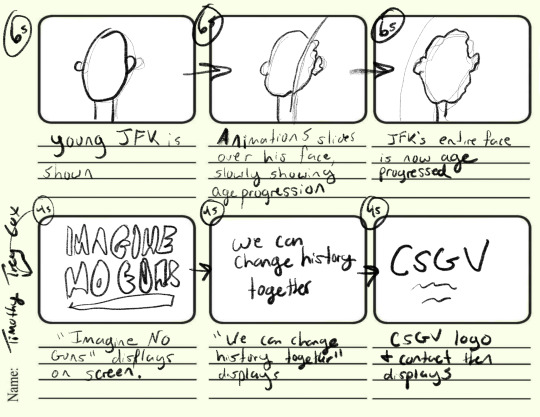 6s
6s
6s
young JFK is
shown
Animation slides
over his face,
slowly showing
age progression
JFK's entire face
is now age
progressed
4s
4s
4s
IMAGINE
NO GUNS
we can
change history
together
CSGV
"Imagine No
Guns" displays
on screen.
"We can change
history together"
displays
CSGV logo
+ contact then
displays
Name: Timothy Trey Cox